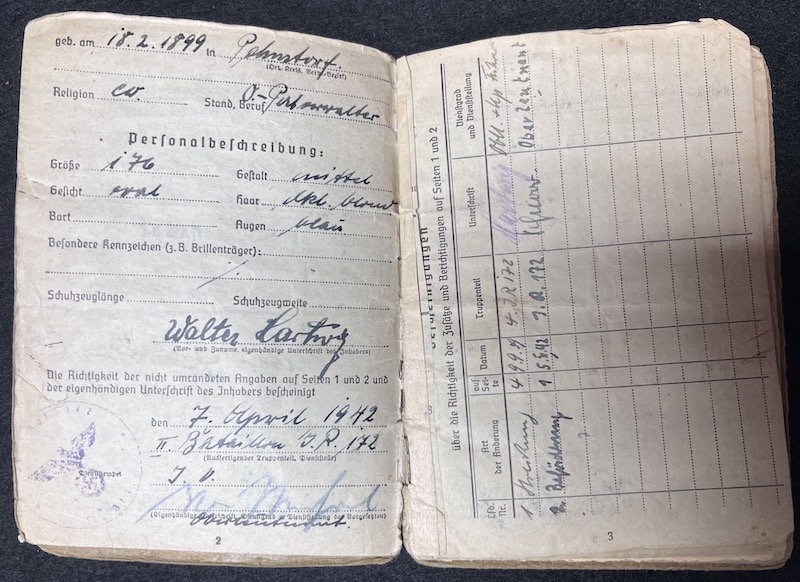 geb. am 18.2.1899 in
(Ort, Kreis, Verw.-Bezirk)
Religion ev.
Stand, Beruf
Personalbeschreibung:
Größe 176 Gestalt mittel
Gesicht oval Haar dkl. blond
Bart Augen blau
Besondere Kennzeichen (z. B. Brillenträger):
Schuhzeuglänge Schuhzeugweite
Walter Hartwig
(Vor- und Zuname, eigenhändige Unterschrift des Inhabers)
Die Richtigkeit der nicht umrandeten Angaben auf Seiten 1 und 2 und
der eigenhändigen Unterschrift des Inhabers bescheinigt
den 7. April 1942
II. Bataillon J.R. 172
(Ausfertigender Truppenteil, Dienststelle)
Dienststempel
J. V.
Oberleutnant.
2
Bescheinigungen
über die Richtigkeit der Zusätze und Berichtigungen auf Seiten 1 und 2
Lfd. Nr.
Art der Änderung
auf Seite
Datum
Truppenteil
Unterschrift
Dienstgrad und Dienststellung
1
4
2. Beförderung 1 J.R. 172
Oberleutnant
3